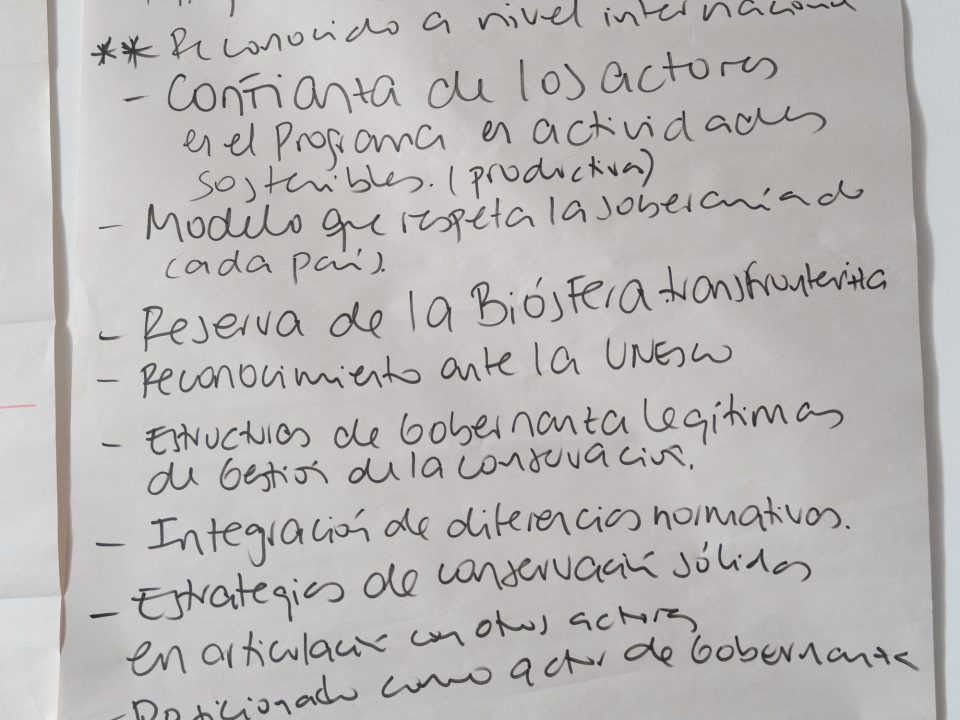 ** Reconocido a nivel internacional
- Confianza de los actores
en el Programa en actividades
sostenibles. (productiva)
- Modelo que respeta la soberanía de
cada país.
- Reserva de la Biósfera transfronteriza
- Reconocimiento ante la UNESCO
- Estructuras de Gobernanza legítimas
de Gestión de la conservación.
- Integración de diferencias normativas.
- Estrategias de conservación sólidas
en articulación con otros actores
- Posicionado como actor de Gobernanza